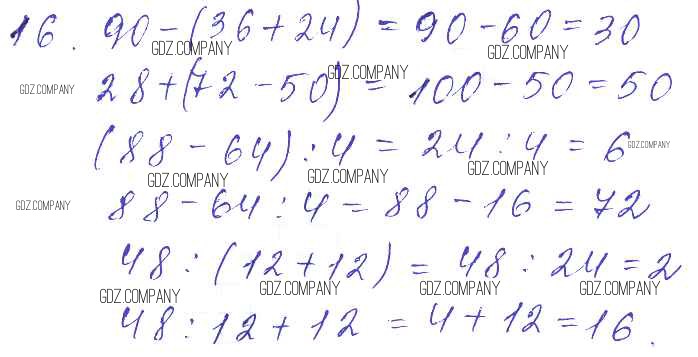 16. 90 - (36 + 24) = 90 - 60 = 30
GDZ.COMPANY GDZ.COMPANY
28 + (72 - 50) = 100 - 50 = 50
GDZ.COMPANY GDZ.COMPANY
(88 - 64) : 4 = 24 : 4 = 6
GDZ.COMPANY GDZ.COMPANY GDZ.COMPANY GDZ.COMPANY
88 - 64 : 4 = 88 - 16 = 72
GDZ.COMPANY
48 : (12 + 12) = 48 : 24 = 2
GDZ.COMPANY GDZ.COMPANY GDZ.COMPANY GDZ.COMPANY
48 : 12 + 12 = 4 + 12 = 16.